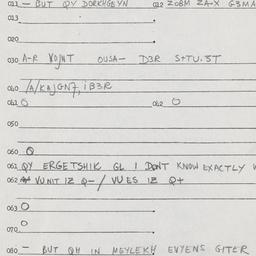 011 — BUT QY DORKHGEYN 012 ZOBM ZA-X G3MA
013
020
030 A-R VOJNT OUSA- D3R S+TU.ST
040 /A/KAJGN7, iB3R
041 O 042 O
050
060 O
061 QY ERGETSHIK GL I DON'T KNOW EXACTLY
062 VU NIT IZ Q-/ VU ES IZ Q+
063 O
070 O
080 — BUT QH IN MEYLEKH EVTENS GITER